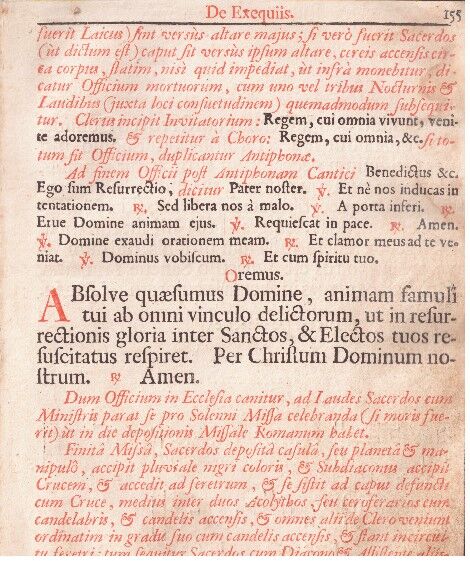 De Exequiis. 155
fuerit Laicus) sint versus altare majus; si verò fuerit Sacerdos
(ùt dictum est) caput sit versus ipsum altare, cereis accensis cir-
ca corpus, statim, nisi quid impediat, ùt infrà monebitur, di-
catur Officium mortuorum, cum uno vel tribus Nocturnis &
Laudibus (juxta loci consuetudinem) quemadmodum subsequi-
tur. Clerus incipit Invitatorium: Regem, cui omnia vivunt, veni-
te adoremus. & repetitur à Choro: Regem, cui omnia, &c. si to-
tum sit Officium, duplicantur Antiphonæ.
Ad finem Officii post Antiphonam Cantici Benedictus &c.
Ego sum Resurrectio, dicitur Pater noster. ℣. Et nè nos inducas in
tentationem. ℟. Sed libera nos à malo. ℣. A porta inferi. ℟.
Erue Domine animam ejus. ℣. Requiescat in pace. ℟. Amen.
℣. Domine exaudi orationem meam. ℟. Et clamor meus ad te ve-
niat. ℣. Dominus vobiscum. ℟. Et cum spiritu tuo.
Oremus.
ABsolve quæsumus Domine, animam famuli
tui ab omni vinculo delictorum, ut in resur-
rectionis gloria inter Sanctos, & Electos tuos re-
suscitatus respiret. Per Christum Dominum no-
strum. ℟. Amen.
Dum Officium in Ecclesia canitur, ad Laudes Sacerdos cum
Ministris parat se pro Solenni Missa celebranda (si moris fue-
rit) ùt in die depositionis Missale Romanum habet.
Finitâ Missâ, Sacerdos depositâ casulâ, seu planetâ & ma-
nipulô, accipit pluviale nigri coloris, & Subdiaconus accipit
Crucem, & accedit ad feretrum, & se sistit ad caput defuncti
cum Cruce, medius inter duos Acolythos, seu ceroferarios cum
candelabris, & candelis accensis, & omnes alii de Clero veniunt
ordinatim in gradu suo cum candelis accensis, & stant in circui-
tu feretri: tum sequitur Sacerdos cum Diacono & Assistente